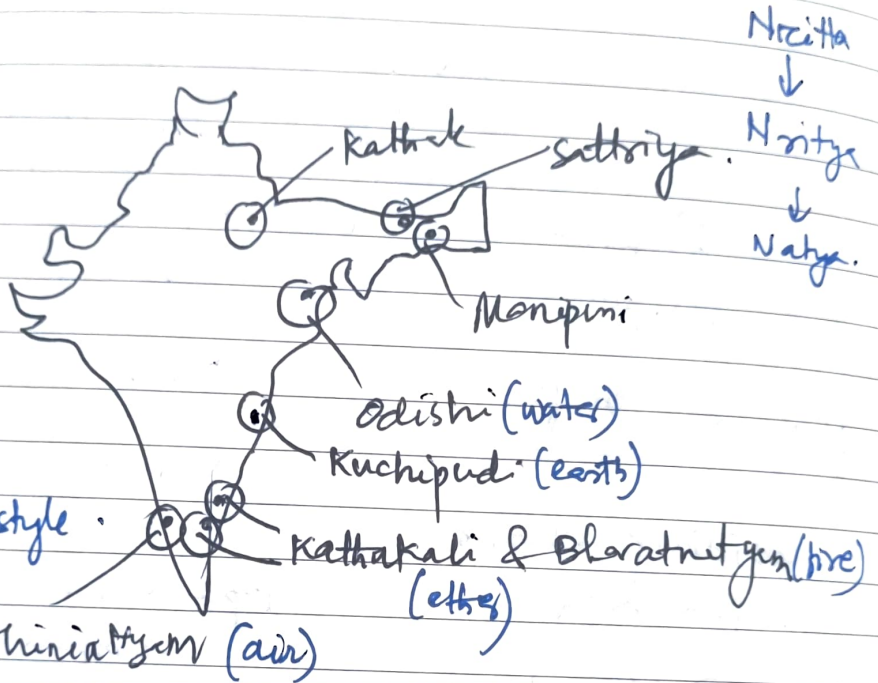 Nritta
↓
Kathak
Sattriya.
Nritya
↓
Natya.
Manipuri
Odishi (water)
Kuchipudi (earth)
style.
Kathakali & Bharatnatyam (fire)
(ether)
hiniattyam (air)